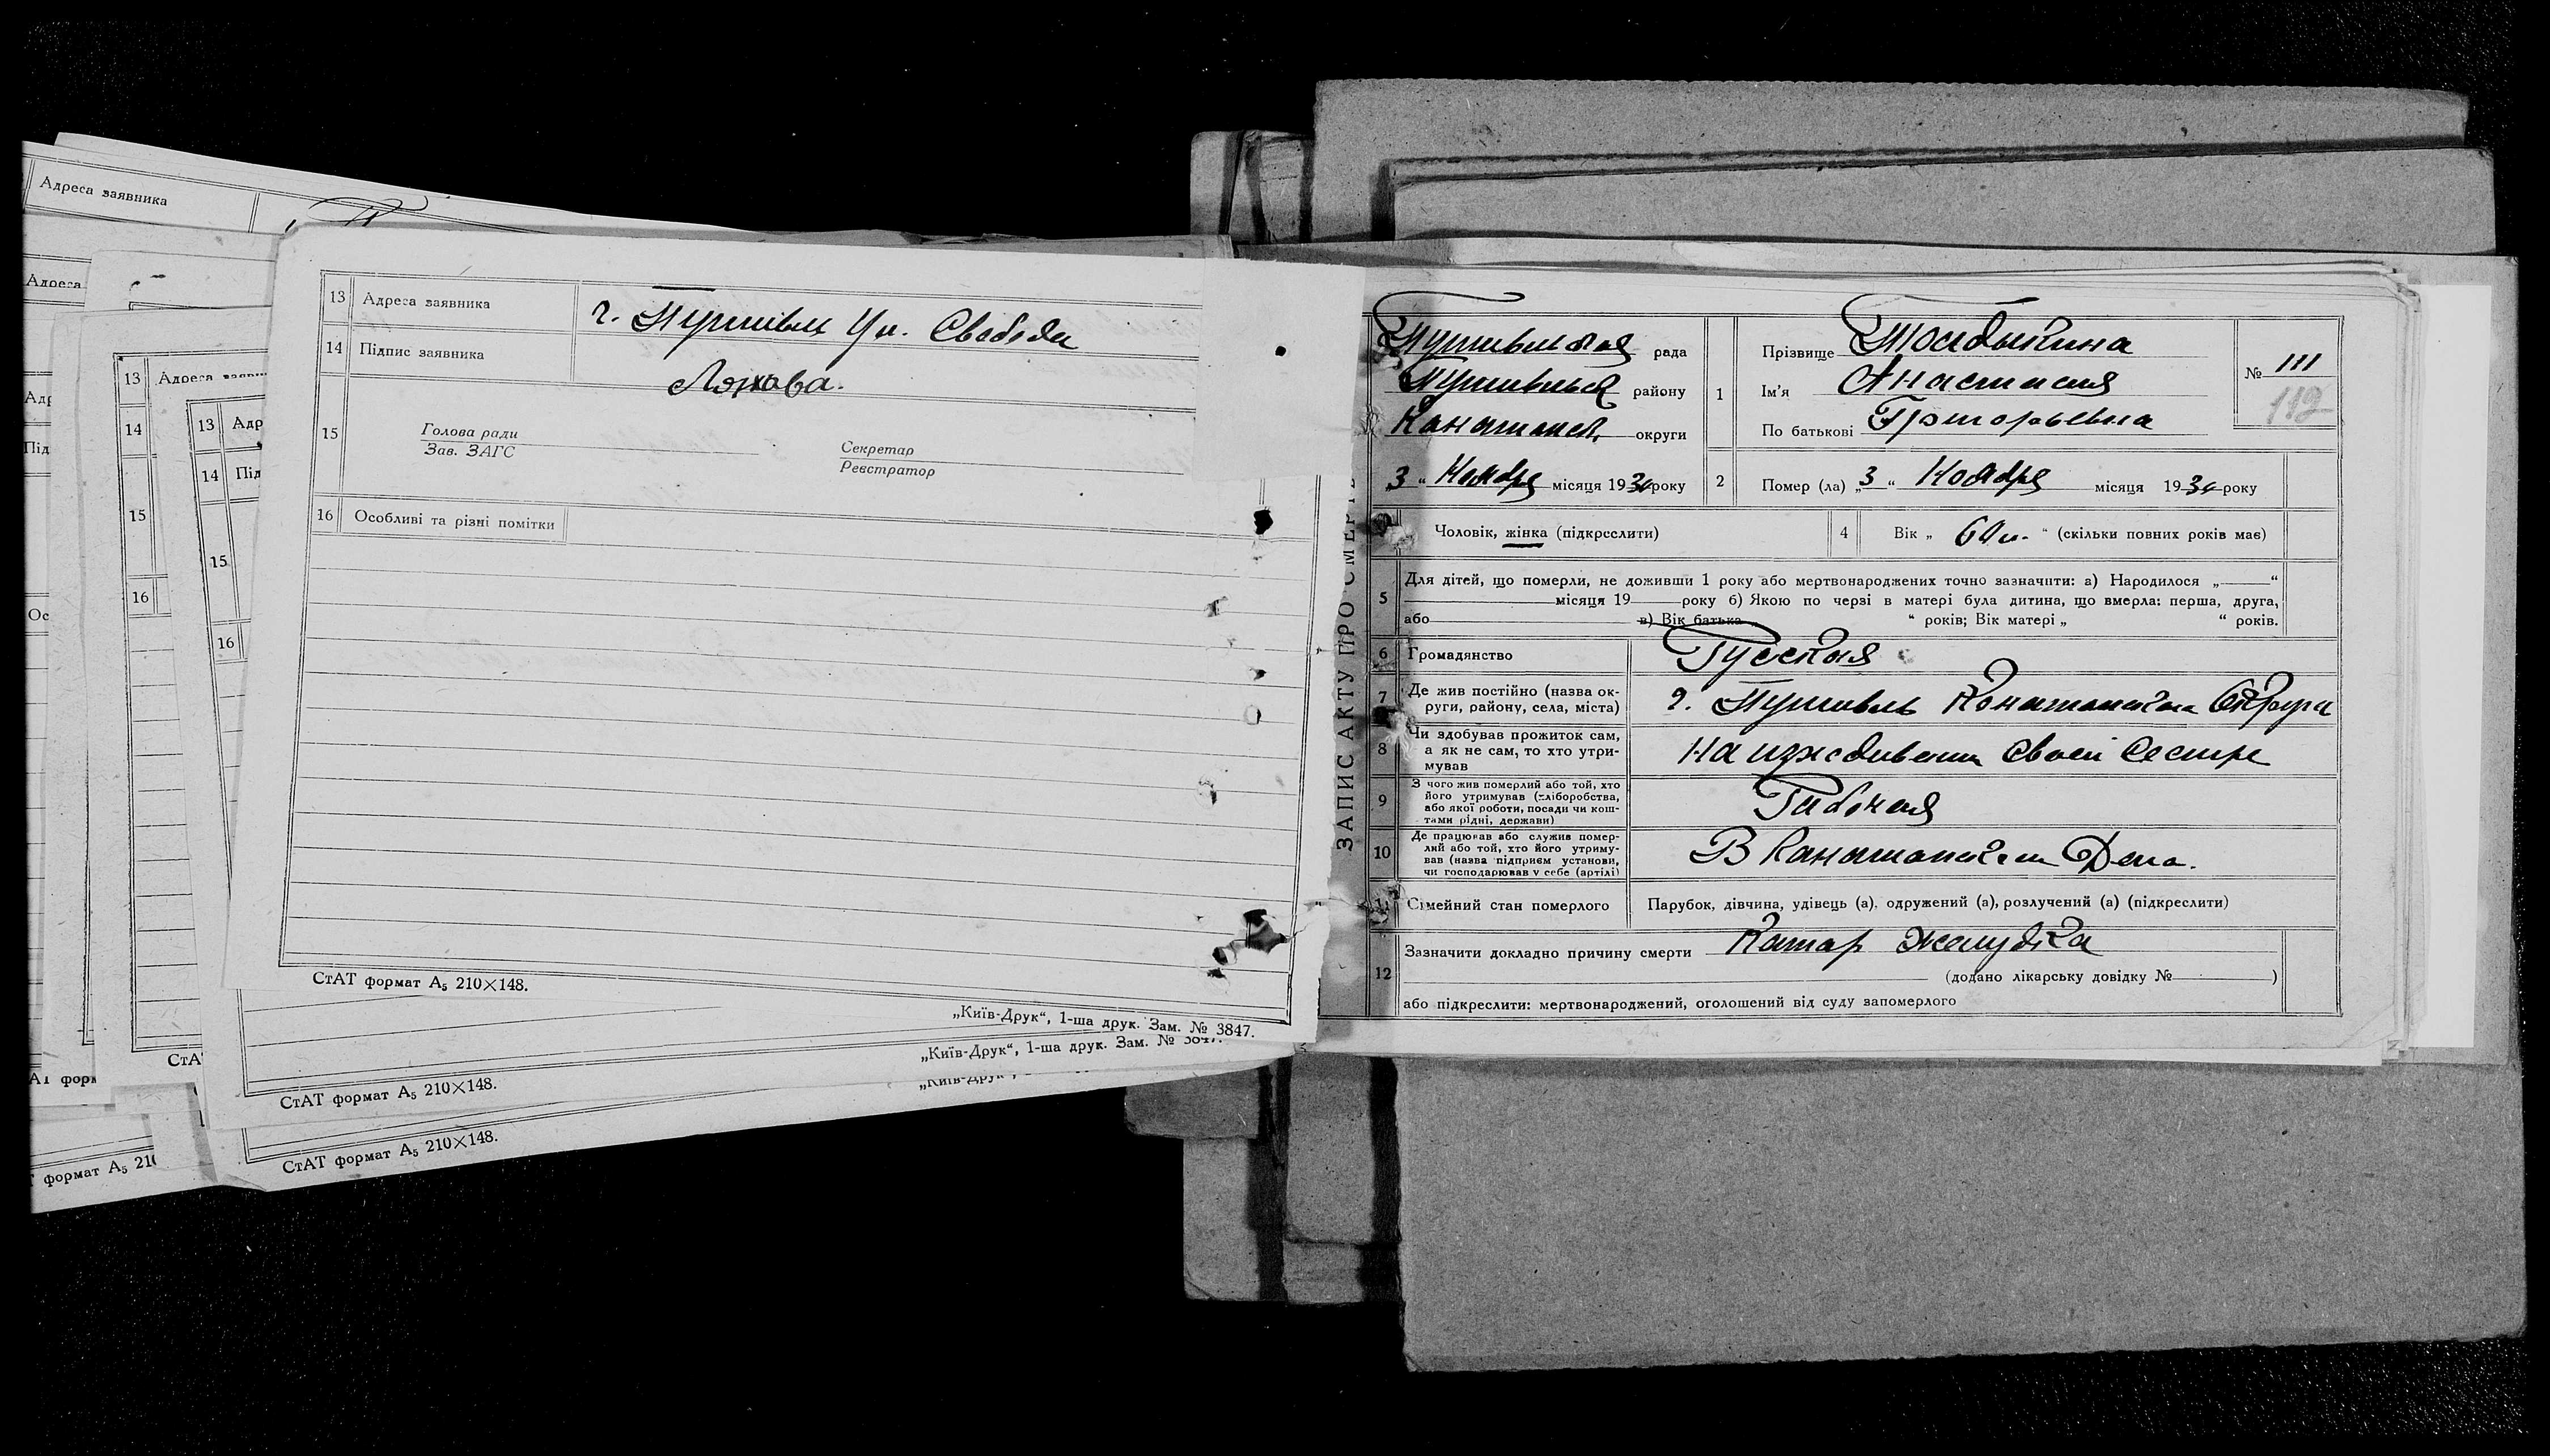 Адреса заявника
Адреса
13 Адреса
14
15
16
13 Адр
14 Під
15
16
Ос
13 Адреса заявника г. Путивль Ул. Свободы
14 Підпис заявника
Ляхова.
15 Голова ради
Зав. ЗАГС
Секретар
Реєстратор
16 Особливі та різні помітки
СтАТ формат А₅ 210×148.
„Київ-Друк“, 1-ша друк. Зам. № 3847.
„Київ-Друк“, 1-ша друк. Зам. № 3847.
СтАТ формат А₅ 210×148.
СтАТ формат А₅ 210×148.
формат А₅ 21
ЗАПИС АКТУ ПРО СМЕРТЬ
Путивльская рада
Путивльск району
Конотопск. округи
„3“ Ноября місяця 1930 року
1 Прізвище
Ім'я Анастасия
По батькові Григорьевна
№ 111
112
2 Помер (ла) „3“ Ноября місяця 1930 року
Чоловік, жінка (підкреслити)
4 Вік „60 л.“ (скільки повних років має)
5 Для дітей, що померли, не доживши 1 року або мертвонароджених точно зазначити: а) Народилося „ “
місяця 19 року б) Якою по черзі в матері була дитина, що вмерла: перша, друга,
або в) Вік батька “ років; Вік матері „ “ років.
6 Громадянство Русская
7 Де жив постійно (назва ок-
руги, району, села, міста) г. Путивль Конотопской Округи
8 Чи здобував прожиток сам,
а як не сам, то хто утри-
мував На иждивении Своей Сестры
9 З чого жив померлий або той, хто
його утримував (хліборобства,
або якої роботи, посади чи кош-
тами рідні, держави) Рабочая
10 Де працював або служив помер-
лий або той, хто його утриму-
вав (назва підприєм установи,
чи господарював у себе (артілі) В Конотопском Депо.
11 Сімейний стан померлого Парубок, дівчина, удівець (а), одружений (а), розлучений (а) (підкреслити)
12 Зазначити докладно причину смерти Катар желудка
(додано лікарську довідку № )
або підкреслити: мертвонароджений, оголошений від суду запомерлого